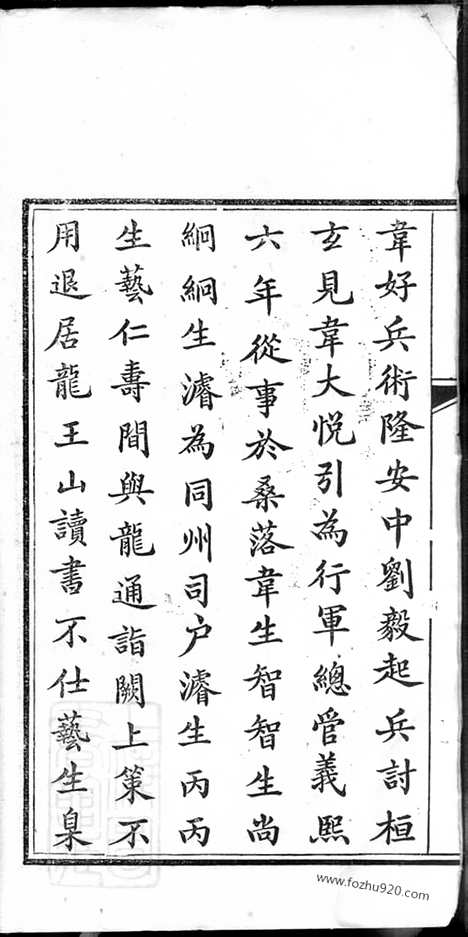 韋好兵術隆安中劉毅起兵討桓
玄見韋大悅引為行軍總管義熙
六年從事於桑落韋生智智生尚
絅絅生濬為同州司户濬生丙丙
生藝仁壽間與龍通詣闕上策不
用退居龍王山讀書不仕藝生臯
www.fozhu920.com